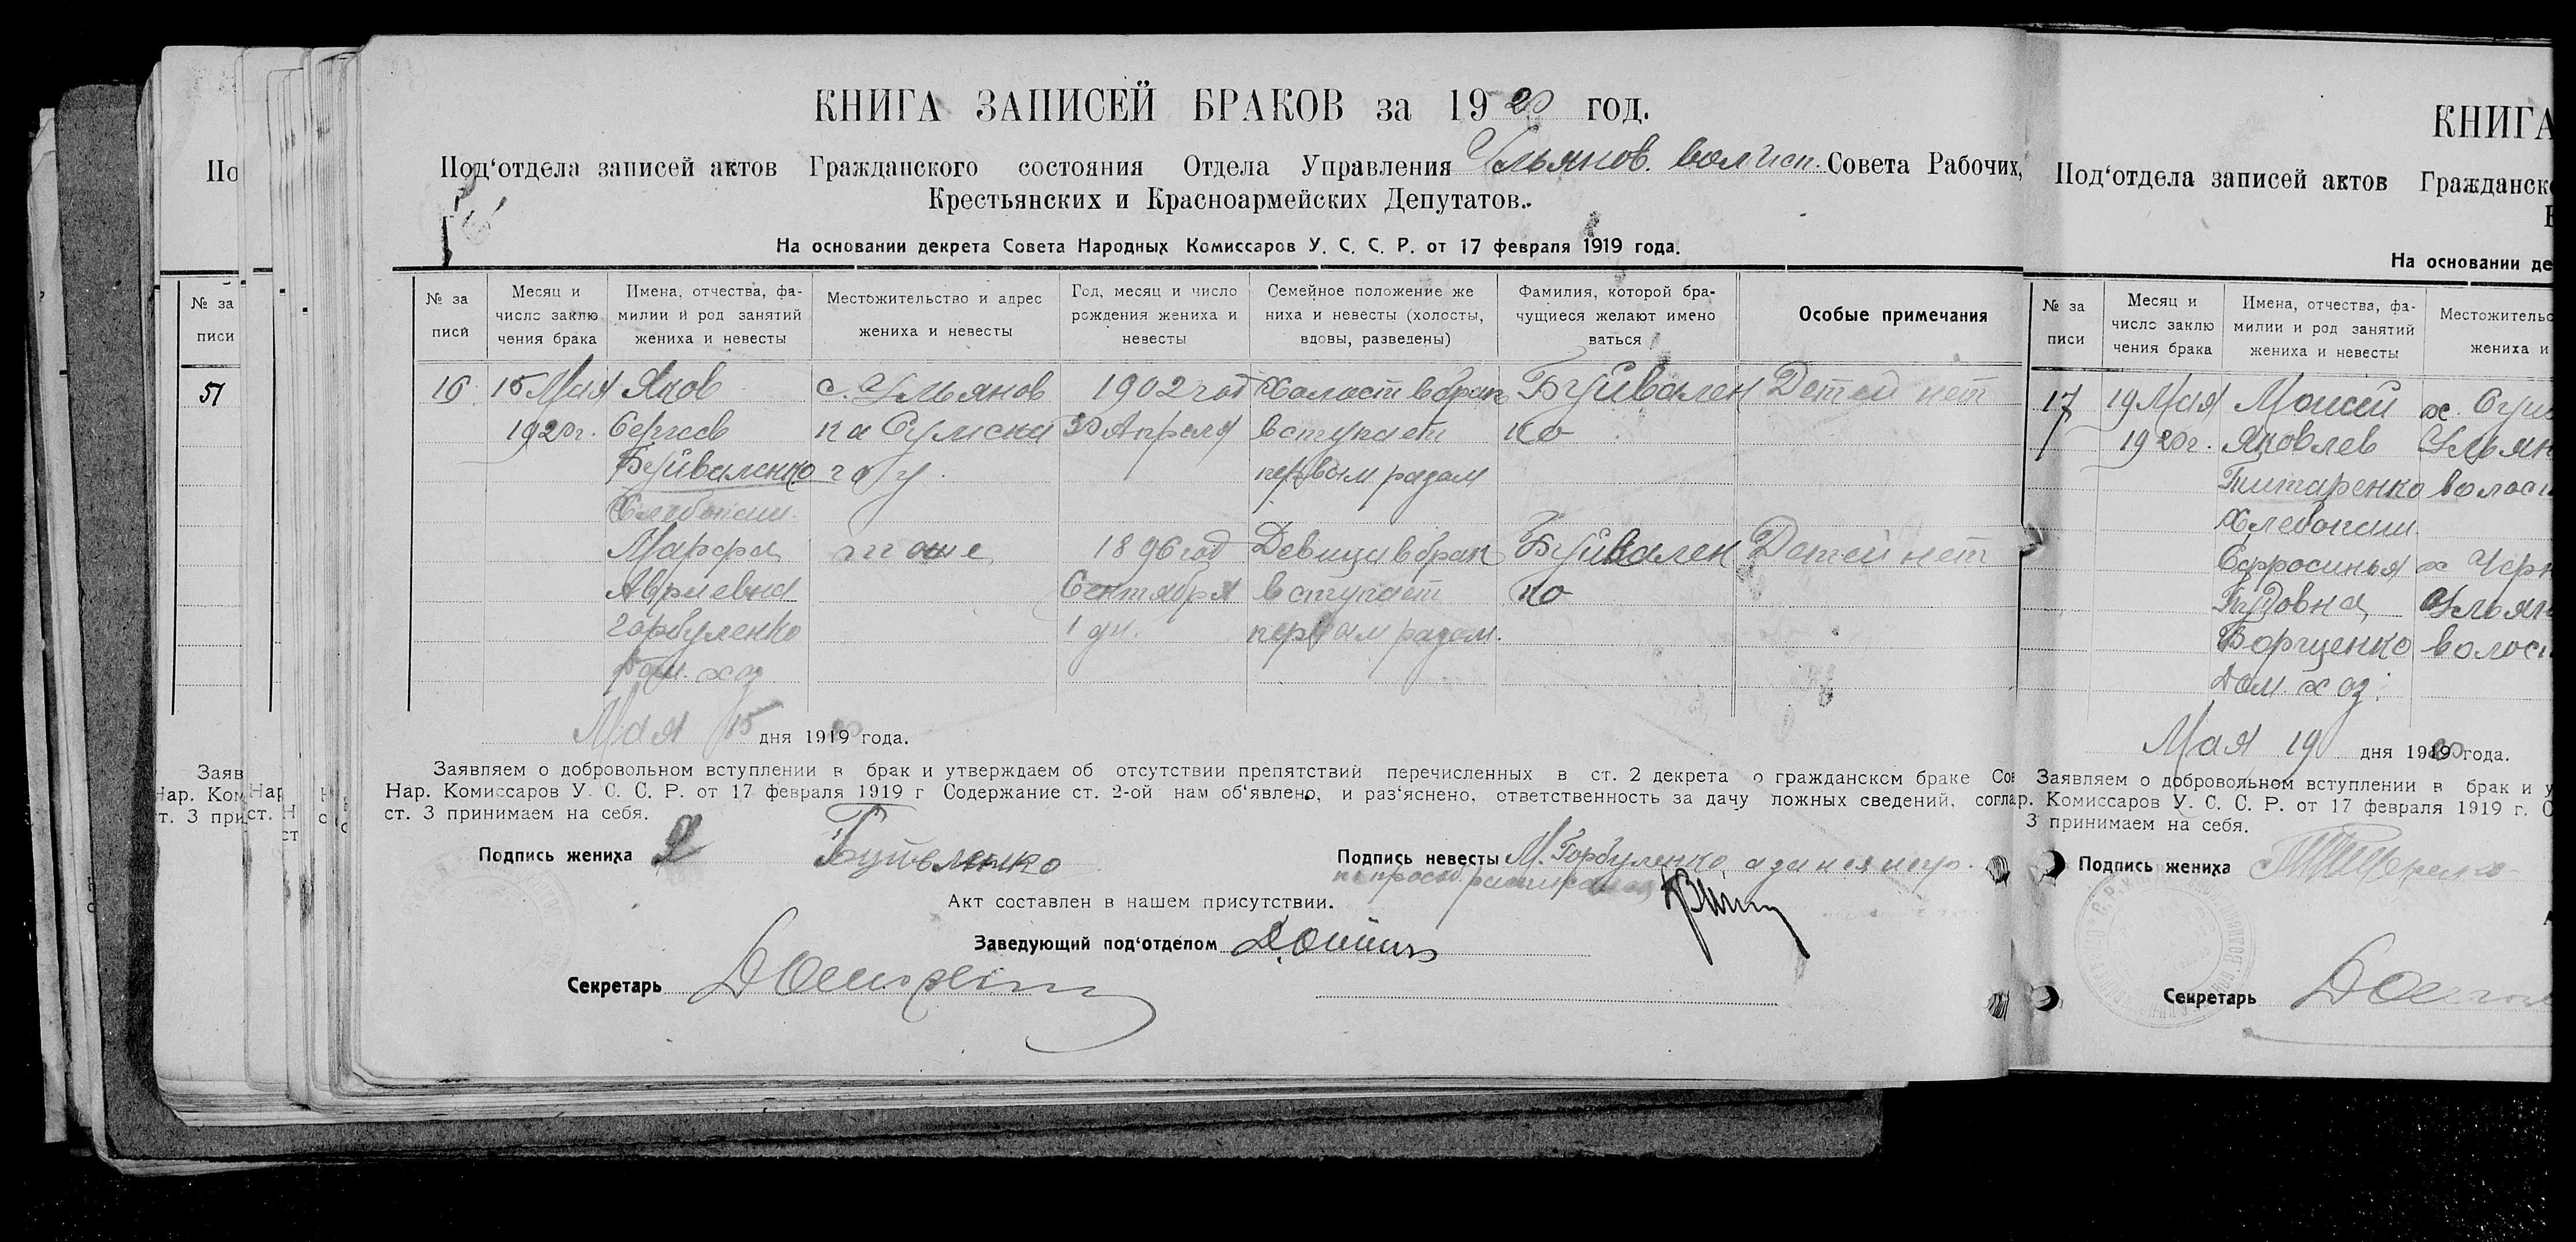 КНИГА ЗАПИСЕЙ БРАКОВ за 1920 год.
Под‘отдела записей актов Гражданского состояния Отдела Управления Ульянов. волисп. Совета Рабочих,
Крестьянских и Красноармейских Депутатов.
На основании декрета Совета Народных Комиссаров У. С. С. Р. от 17 февраля 1919 года.
№ за писи
Месяц и число заклю чения брака
Имена, отчества, фа- милии и род занятий жениха и невесты
Местожительство и адрес жениха и невесты
Год, месяц и число рождения жениха и невесты
Семейное положение же ниха и невесты (холосты, вдовы, разведены)
Фамилия, которой бра- чущиеся желают имено ваться
Особые примечания
16 15 Мая Яков с. Ульянов 1902 год Холост в брак Буйвален Детей нет
1920 г. Сергеев ка Сумска 30 Апреля вступает ко
Буйваленко го у. первым разом
Хлебопаш.
Марфа тоже 1896 год Девица в брак Буйвален Детей нет
Сентября вступает ко
Горбуленко 1 дн. первым разом.
Дом. хоз
Мая 15 дня 1919 года.
Заявляем о добровольном вступлении в брак и утверждаем об отсутствии препятствий перечисленных в ст. 2 декрета о гражданском браке Сов
Нар. Комиссаров У. С. С. Р. от 17 февраля 1919 г Содержание ст. 2-ой нам об‘явлено, и раз‘яснено, ответственность за дачу ложных сведений, соглас
ст. 3 принимаем на себя.
Подпись жениха Я Буйвленко
Подпись невесты М. Горбуленко, а за нея негр.
Акт составлен в нашем присутствии.
Заведующий под‘отделом
Секретарь
По
№ за писи
51
Заяв
Нар. Ком
ст. 3 при
КНИГА
Под‘отдела записей актов Гражданско
На основании де
№ за писи
Месяц и число заклю чения брака
Имена, отчества, фа- милии и род занятий жениха и невесты
Местожительс жениха и
17 19 Мая Моисей х.
1920 г. Яковлев Ульян
Титаренко волос
Хлебопаш.
Ефросинья х Черн
Ульян
Борщенко волос
Дом. хоз.
Мая 19 дня 1919 года.
Заявляем о добровольном вступлении в брак и у
р. Комиссаров У. С. С. Р. от 17 февраля 1919 г. С
3 принимаем на себя.
Подпись жениха
Секретарь